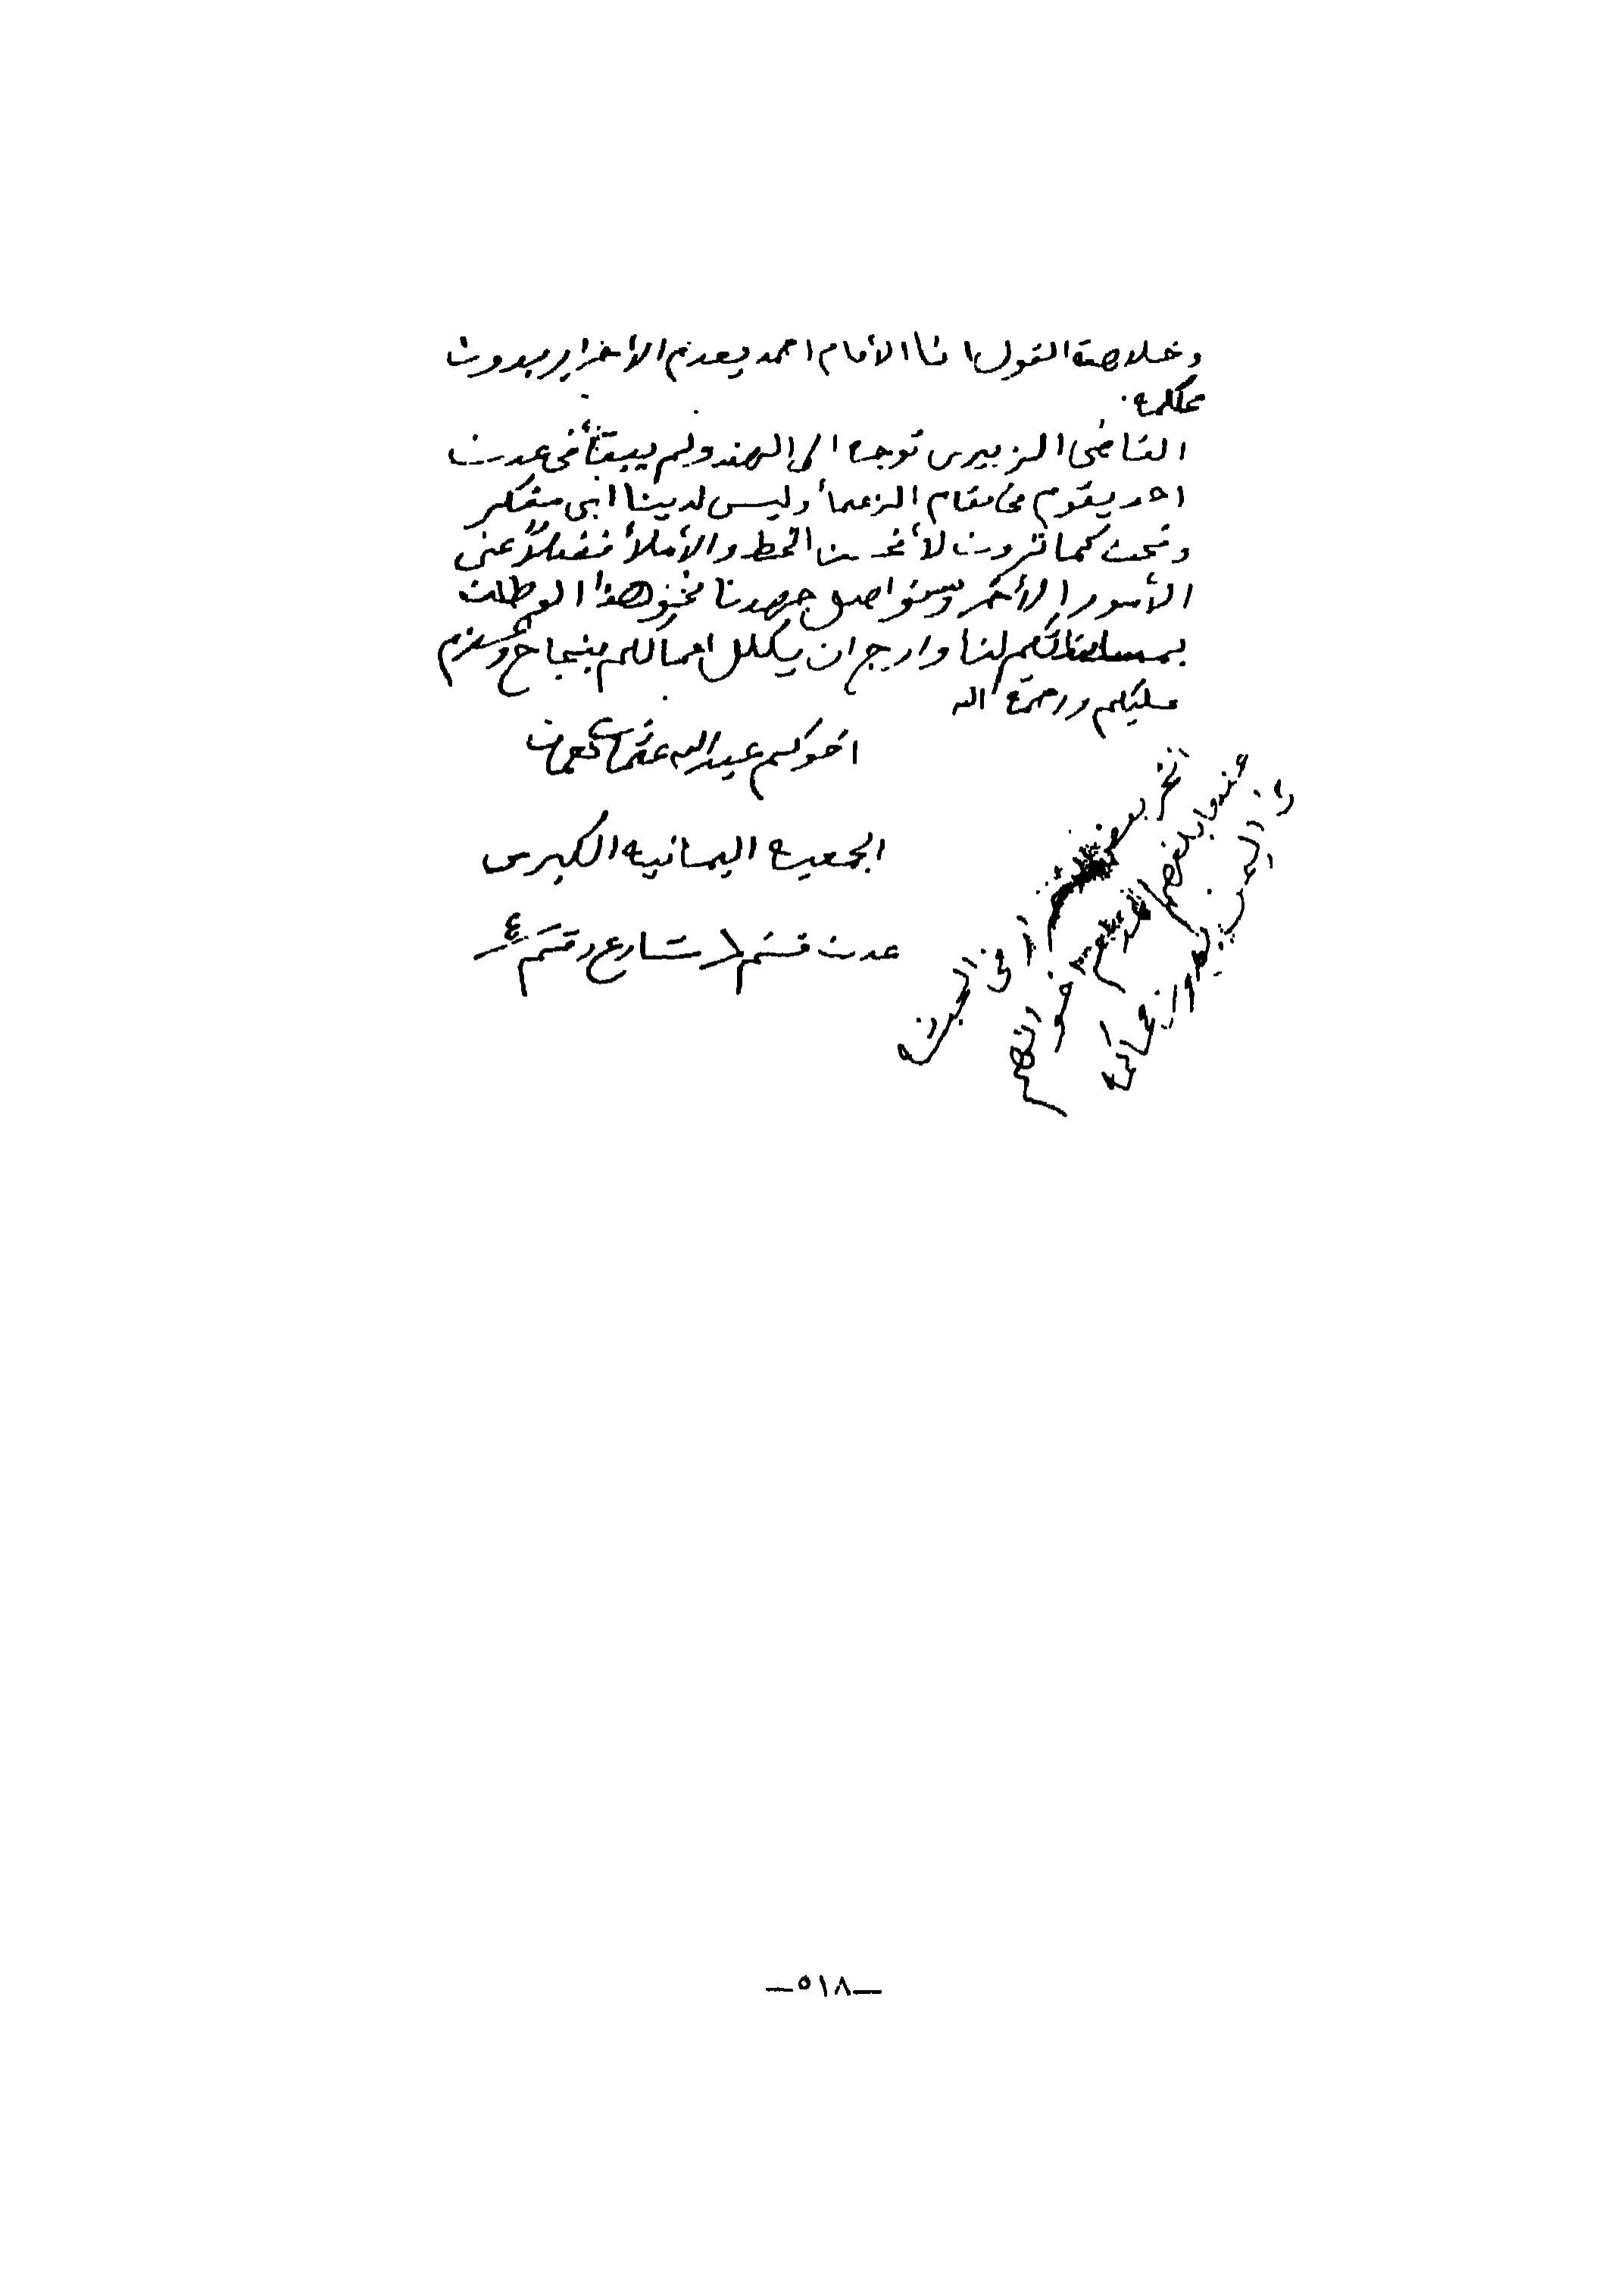 وخلاصة القول ان الأمام احمد يعدم الأخرار بدون
محاكمه.
القاضى الزبيرى توجه الى الهند ولم يبقأ فى عدن
احد يقوم فى مقام الزعمأ وليس لدينا اى مفكر
ونحن كما ترون لأ نحسن الخط والأملأ فضلاً عن
الأمور الأخر وسنواصل جهودنا نحو هذا الوطن
بمساعدتكم لنا وارجو ان يكلل اعمالكم بنجاح وسلام
عليكم ورحمة الله
اخوكم عبدالله عثمان نعمان
الجمعيه اليمانيه الكبرى
عدن قسم / شارع رقم ٤
فى اليمن
عندما بلغهم
اخوانهم
محاكمه
—٥١٨—